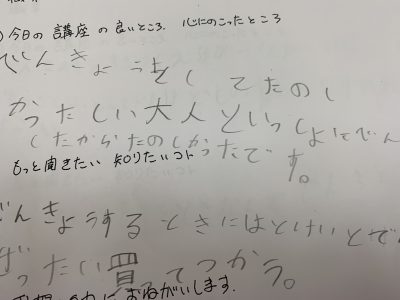 今日の講座の良いところ. 心にのこったところ
でんきょうをしてたのし
かったしい大人といっしょにでん
したからたのしかったです。
もっと聞きたい 知りたいコト
でんきょうするときにはとけいとで
ぜったい買ってつかう。
におねがいします.